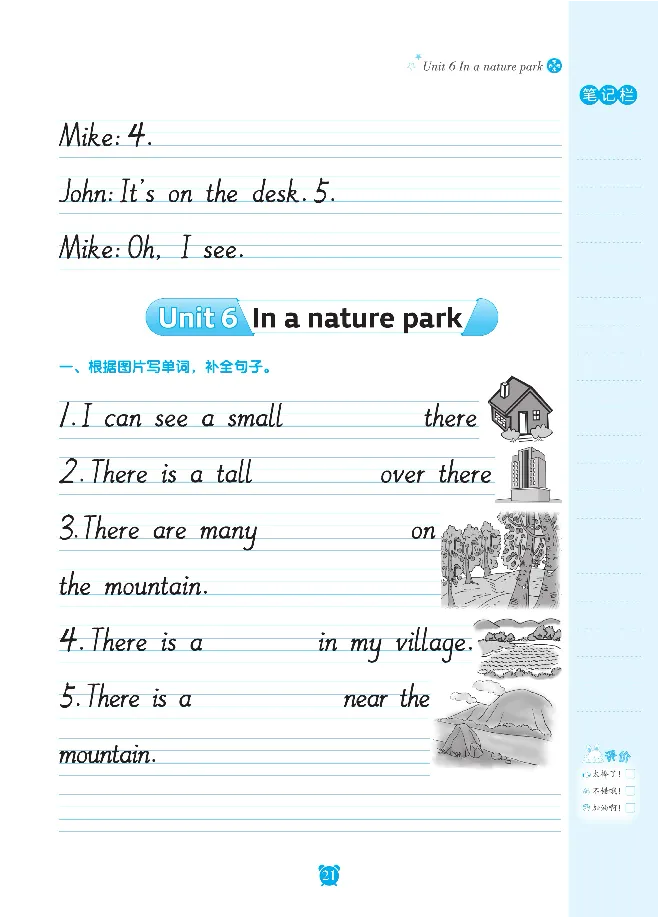 Unit 6 In a nature park
笔记栏
Mike: 4.
John: It's on the desk. 5.
Mike: Oh, I see.
Unit 6 In a nature park
一、根据图片写单词，补全句子。
1. I can see a small there
2. There is a tall over there
3. There are many on
the mountain.
4. There is a in my village.
5. There is a near the
mountain.
评价
太棒了！
不错哦！
加油啊！
21